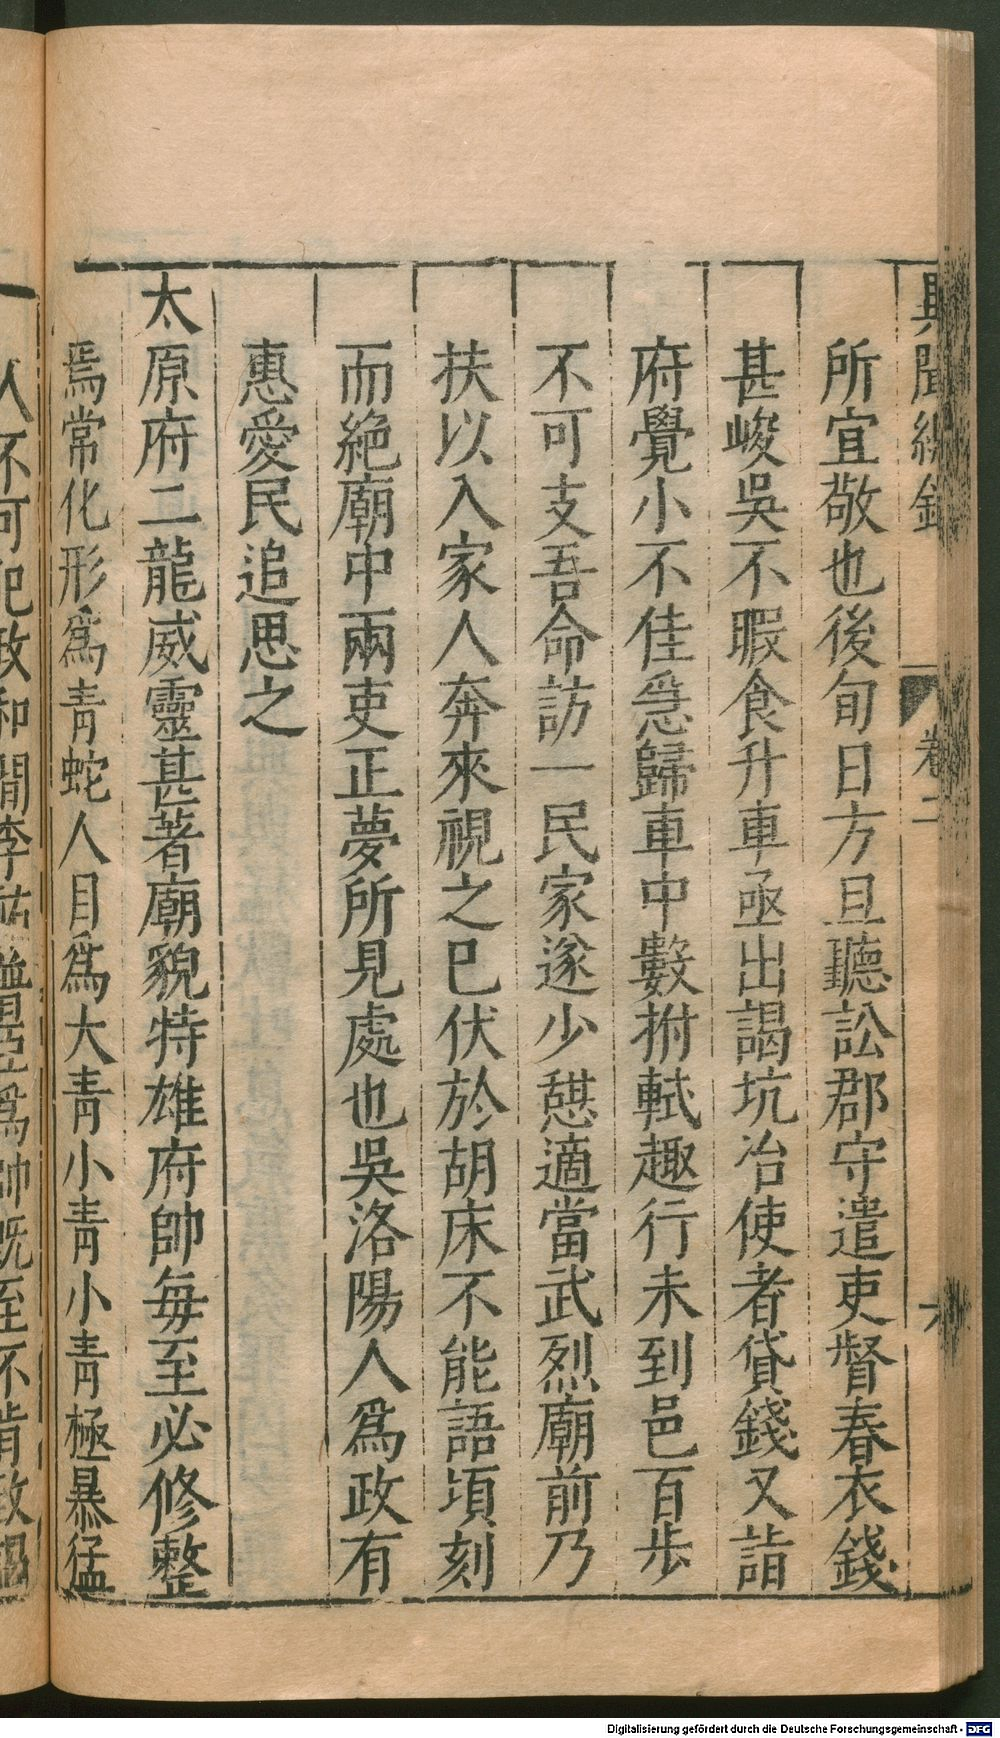 異聞總錄
卷二
六
所宜敬也後旬日方旦聽訟郡守遣吏督春衣錢
甚峻吳不暇食升車亟出謁坑冶使者貸錢又詣
府覺小不佳急歸車中數拊軾趣行未到邑百步
不可支吾命訪一民家遂少憇適當武烈廟前乃
扶以入家人奔來視之已伏於胡床不能語頃刻
而絶廟中兩吏正夢所見處也吳洛陽人爲政有
惠愛民追思之
太原府二龍威靈甚著廟貌特雄府帥每至必修整
焉常化形爲青蛇人目爲大青小青小青極暴猛
人不可犯政和間李
爲帥既至不肯致
Digitalisierung gefördert durch die Deutsche Forschungsgemeinschaft - DFG